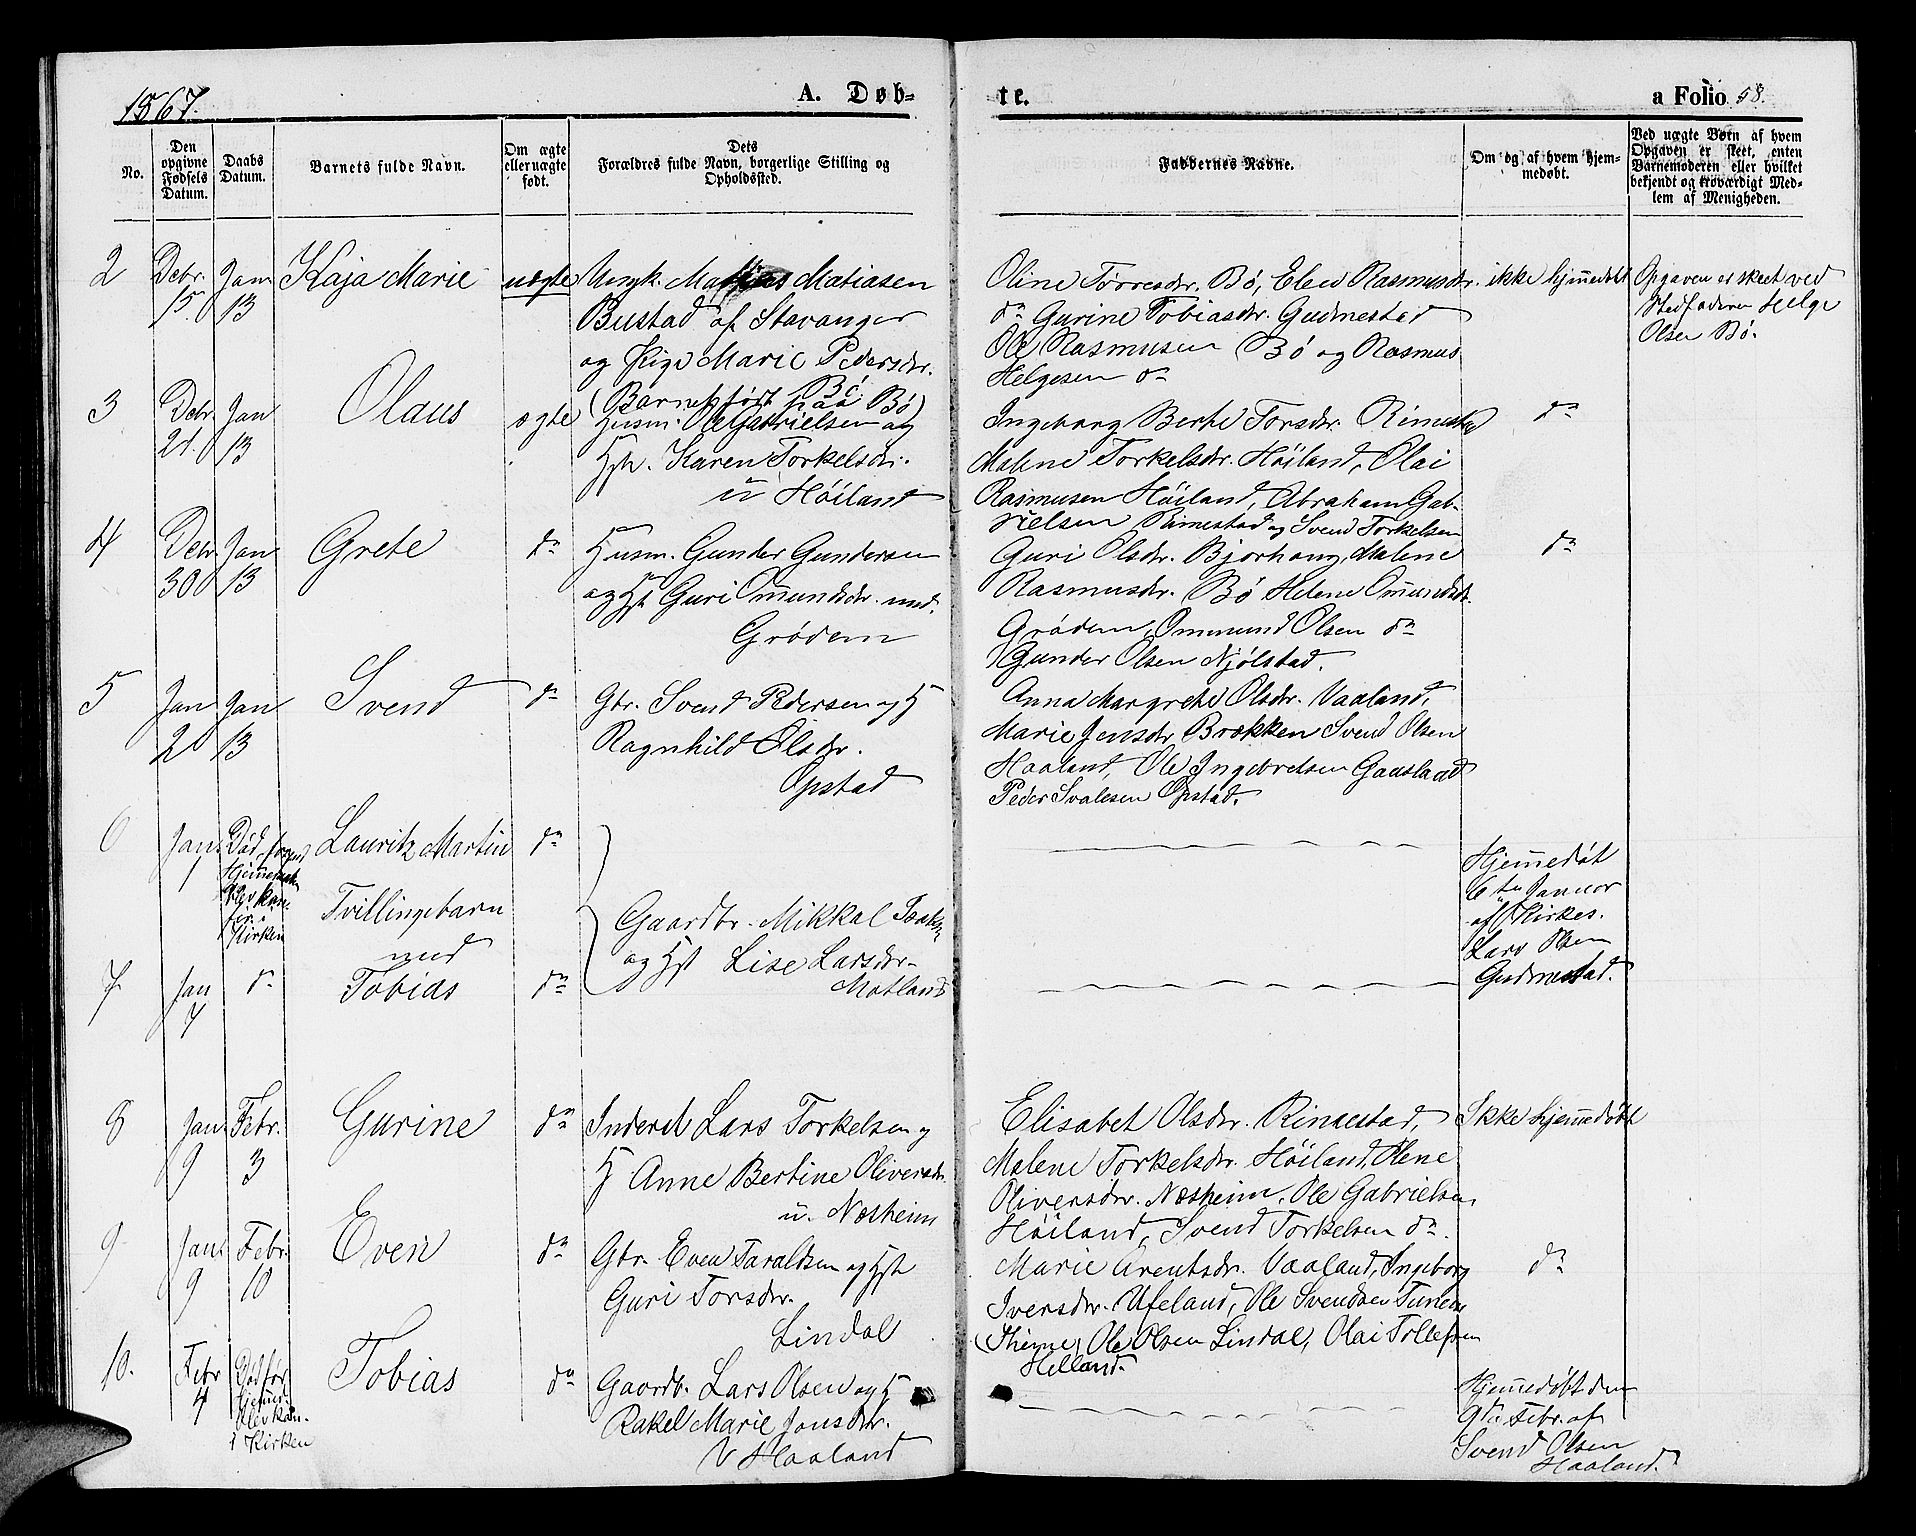 1867.
A. Døb-
te.
a Folio 58.
No.
Den opgivne Fødsels Datum.
Daabs Datum.
Barnets fulde Navn.
Om ægte eller uægte født.
Dets
Forældres fulde Navn, borgerlige Stilling og
Opholdssted.
Faddernes Navne.
Om og af hvem hjem-
medøbt.
Ved uægte Børn af hvem
Opgaven er skeet, enten
Barnemoderen eller hvilket
bekjendt og troværdigt Med-
lem af Menigheden.
2
Debr. 15
Jan 13
Kaja Marie
uægte
Ungk. Matias Matiasen
Bustad af Stavanger
og Pige Marie Pedersdr.
Bø
(Barnet født paa Bø)
Oline Tørresdr. Bø, Elen Rasmusdr.
do Gurine Tobiasdr. Gudmestad
Ole Rasmusen Bø og Rasmus
Helgesen do
ikke hjemmedøbt
Opgaven er skeet ved
Stedfaderen Helge
Olsen Bø.
3
Debr. 21.
Jan 13
Olaus
ægte
Husm. Ole Gabrielsen og
Hst. Karen Torkelsdr.
u Høiland
Ingeborg Berte Torsdr. Rimestad
Malene Torkelsdr. Høiland, Olai
Rasmusen Høiland, Abraham Gab-
rielsen Rimestad og Svend Torkelsen
do
4
Debr 30
Jan 13
Grete
do
Husm. Gunder Gundersen
og Hst Guri Omundsdr. ned.
Grødem
Guri Olsdr. Bjorhaug, Malene
Rasmusdr. Bø Helene Omundsdr.
Grødem, Ommund Olsen do
Gunder Olsen Njølstad.
do
5
Jan 2
Jan 13
Svend
do
Gbr. Svend Pedersen og H
Ragnhild Olsdr.
Opstad
Anna Margrete Olsdr. Vaaland,
Marie Jensdr Brækken Svend Olsen
Haaland, Ole Ingebretsen Gausland
Peder Svalesen Opstad.
6
Jan. 1
Død
i
Kirken
Lauritz Martin
do
Tvillingebarn
med
Gaardbr. Mikkal
og Hst Lise Larsdr.
Motland
Hjemmedøbt
6te Januar
af Kirkes.
Lars Olsen
Gudmestad.
7
Jan 7
do
Tobias
do
8
Jan. 9
Febr. 3
Gurine
do
Inderst Lars Torkelsen og
H Anne Bertine Oliversdr.
u. Næsheim
Elisabet Olsdr. Rimestad,
Malene Torkelsdr. Høiland, Olene
Oliversdr. Næsheim, Ole Gabrielsen
Høiland, Svend Torkelsen do.
Ikke hjemmedøbt
9
Jan. 9
Febr. 10
Even
do
Gbr. Even Taraldsen og Hst
Guri Torsdr.
Lindal
Marie Arentsdr. Vaaland, Ingeborg
Iversdr. Ufeland, Ole Svendsen Tunem
(Thime) Ole Olsen Lindal, Olai Tollefsen
Helland.
do
10.
Febr 4
Død før
i Kirken
Tobias
do
Gaardb. Lars Olsen og H
Rakel Marie Jonsdr.
V Haaland
Hjemmedøbt den
9de Febr. af
Svend Olsen
Haaland.